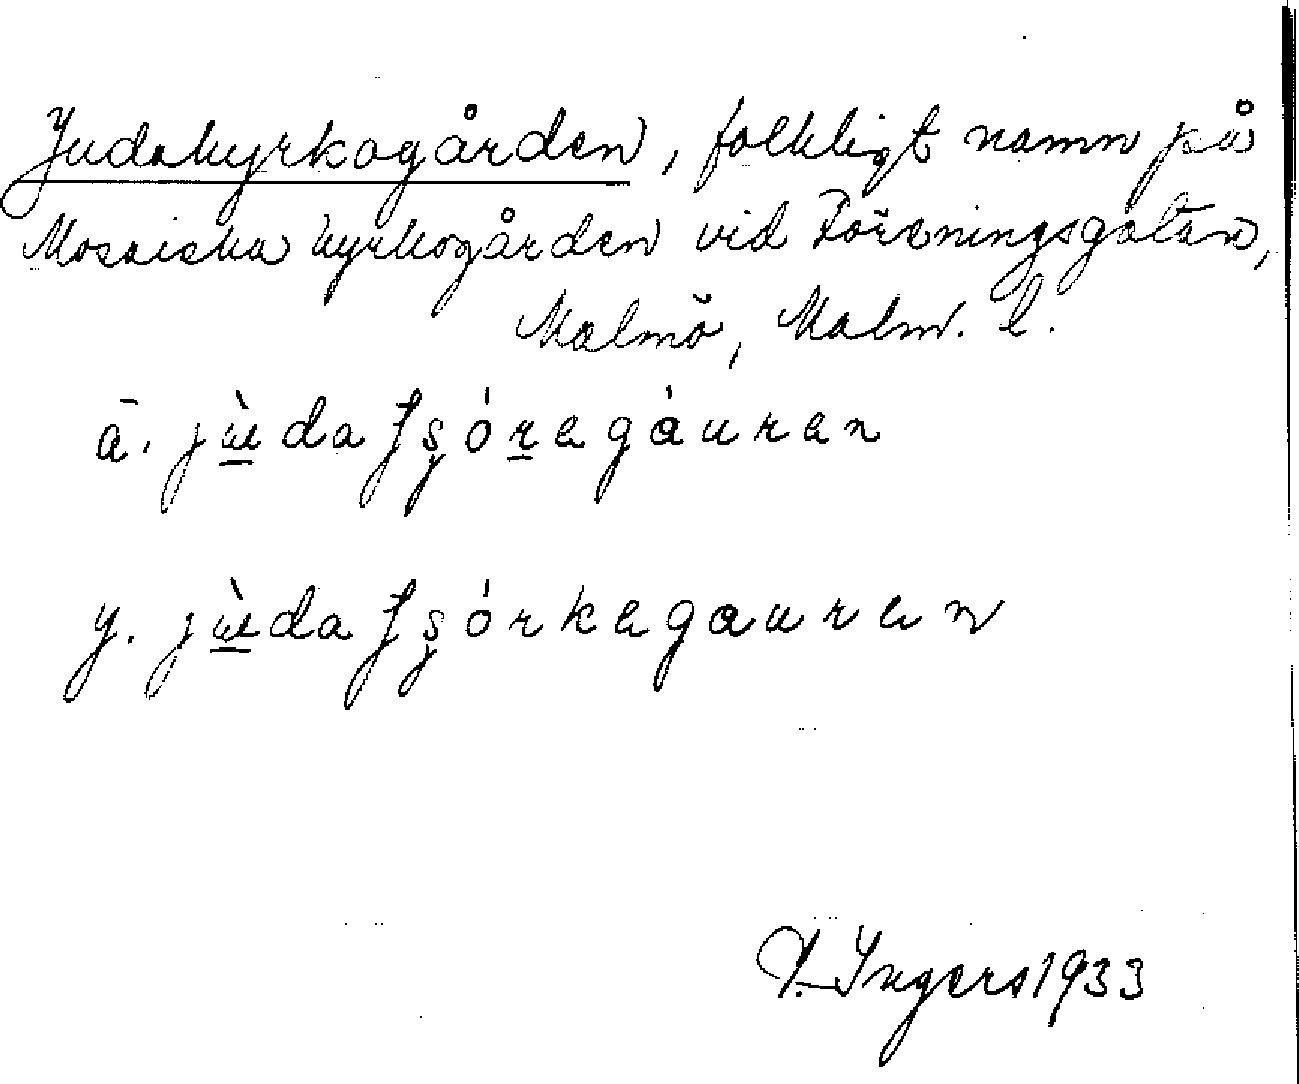 Judakyrkogården, folkligt namn på
Mosaiska kyrkogården vid Föreningsgatan,
Malmö, Malm. l.
ä. jùda ʄȿóregáuren
y. jùda ʄȿórkegauren
I. Ingers 1933